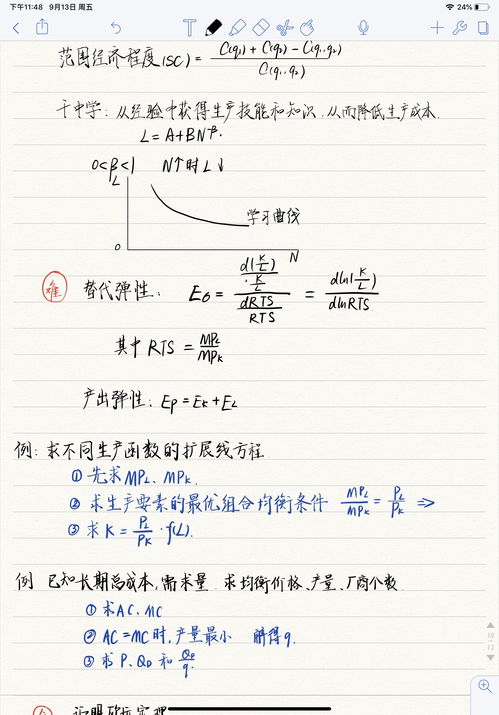 下午11:48 9月13日 周五
24%
范围经济程度(SC) = \frac{C(q₁) + C(q₂) - C(q₁,q₂)}{C(q₁,q₂)}
干中学: 从经验中获得生产技能和知识,从而降低生产成本.
L = A+BN^{-β}.
0<β<1 N↑时L↓
L
学习曲线
0 N
难 替代弹性: Eσ = \frac{\frac{d(\frac{K}{L})}{\frac{K}{L}}}{\frac{dRTS}{RTS}} = \frac{dln(\frac{K}{L})}{dlnRTS}
其中 RTS = \frac{MP_L}{MP_K}
产出弹性: Ep = E_K + E_L
例: 求不同生产函数的扩展线方程
① 先求MP_L、MP_K.
② 求生产要素的最优组合均衡条件 \frac{MP_L}{MP_K} = \frac{P_L}{P_K} ⇒
③ 求 K = \frac{P_L}{P_K} · f(L).
例 已知长期总成本,需求量 求均衡价格、产量、厂商个数
① 求AC、MC
② AC=MC时,产量最小 解得q.
③ 求 P、Q_D 和 \frac{Q_D}{q}.
10
12